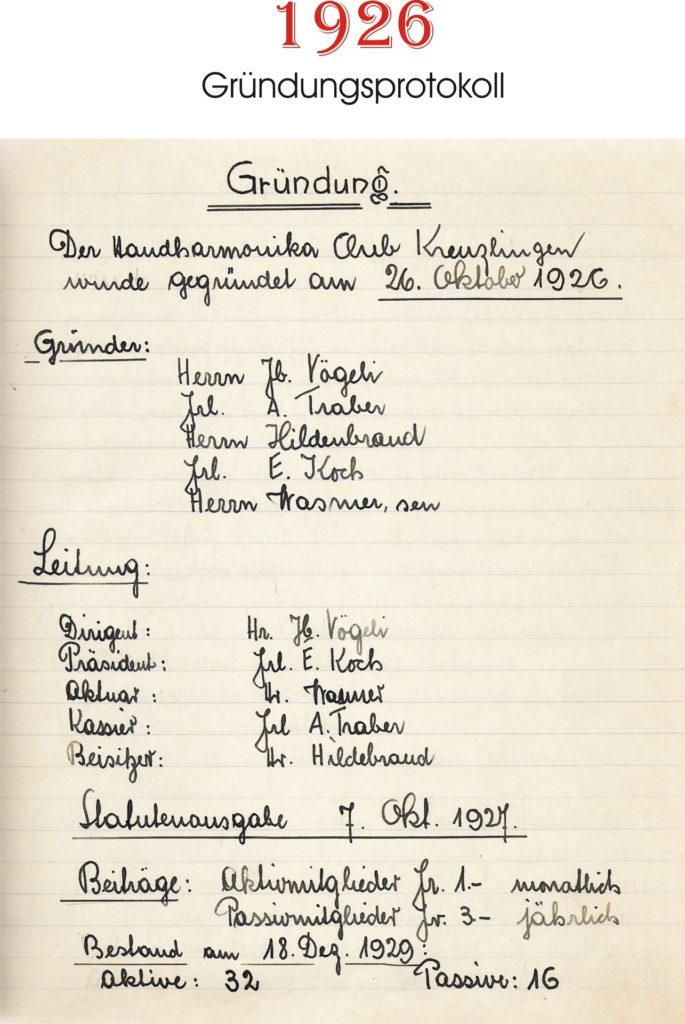 1926
Gründungsprotokoll
Gründung.
Der Handharmonika Club Kreuzlingen
wurde gegründet am 26. Oktober 1926.
Gründer:
Herrn Jb. Vögeli
Frl. A. Traber
Herrn Hildenbrand
Frl. E. Koch
Herrn Wasmer, sen
Leitung:
Dirigent: Hr. Jb. Vögeli
Präsident: Frl. E. Koch
Aktuar: Hr. Wasmer
Kassier: Frl A. Traber
Beisitzer: Hr. Hildebrand
Statutenausgabe 7. Okt. 1927.
Beiträge: Aktivmitglieder Fr. 1.- monatlich
Passivmitglieder Fr. 3.- jährlich
Bestand am 18. Dez. 1929:
Aktive: 32 Passive: 16